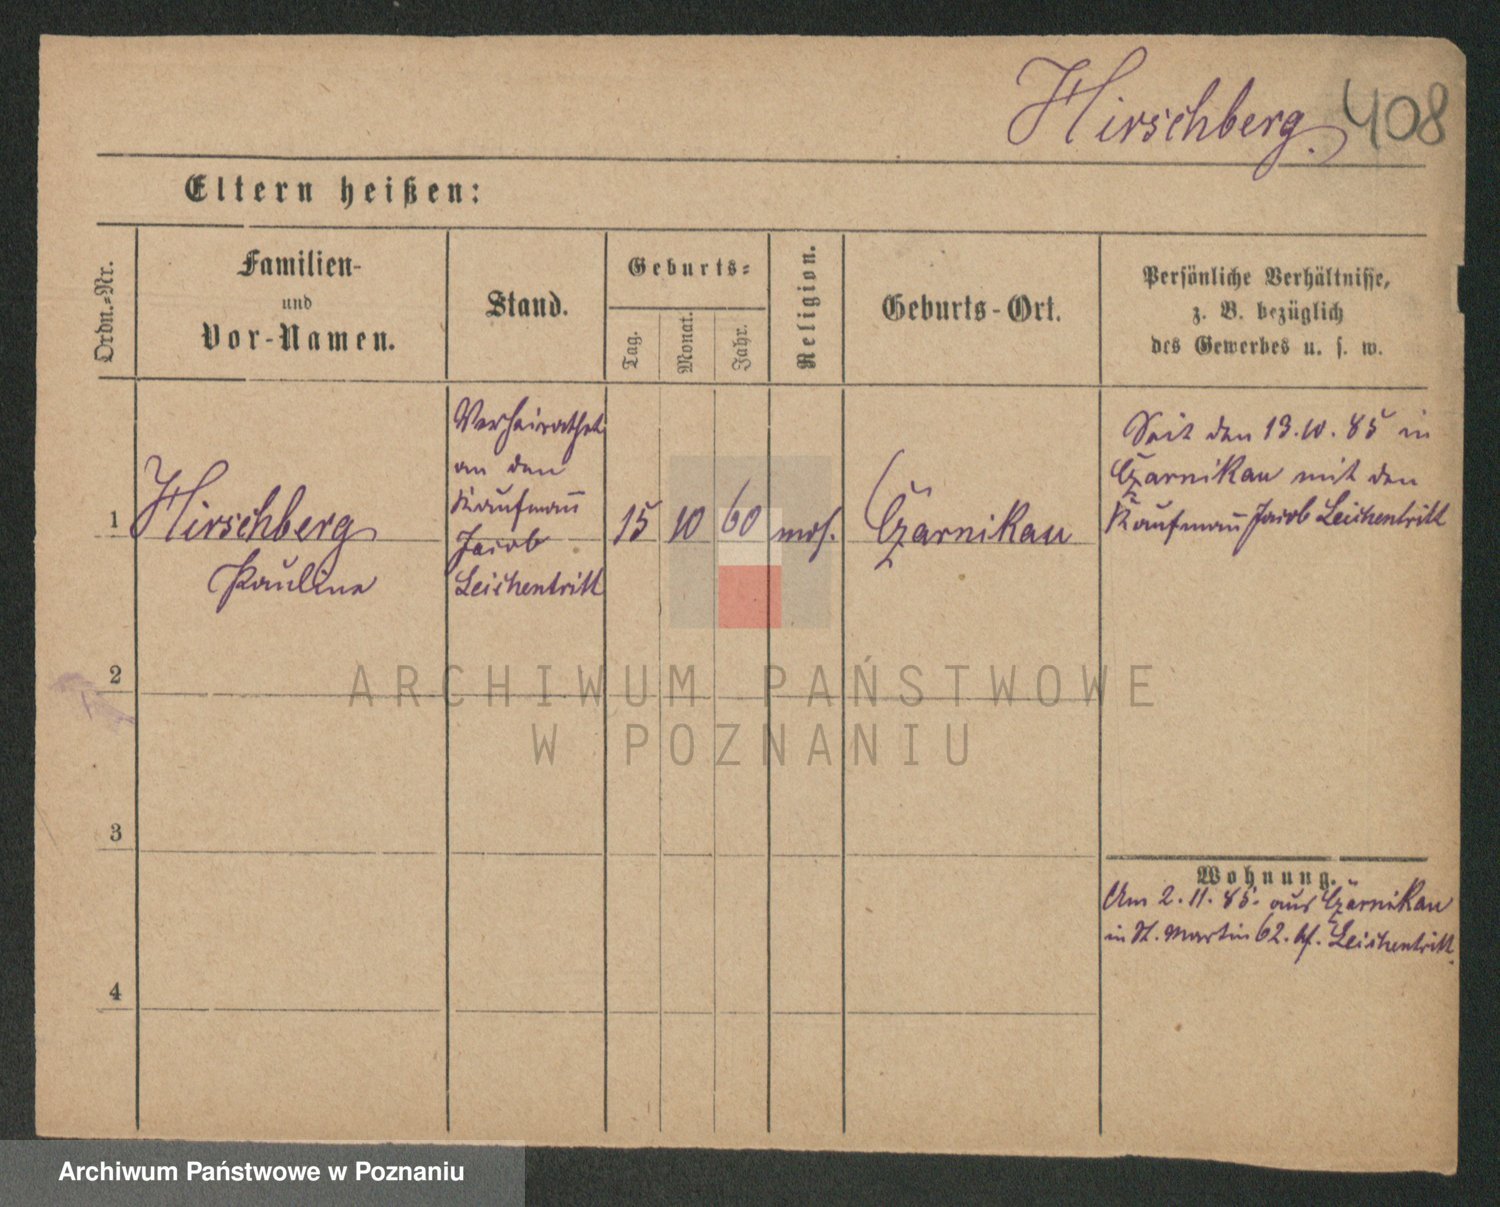 Hirschberg. 408
Eltern heißen:
Ordn.-Nr.
Familien-
und
Vor-Namen.
Stand.
Geburts-
Tag.
Monat.
Jahr.
Religion.
Geburts-Ort.
Persönliche Verhältnisse,
z. B. bezüglich
des Gewerbes u. s. w.
1
Hirschberg
Pauline
Verheirathet
an den
Kaufmann
Jacob
Leichentritt
15
10
60
mos.
Czarnikau
Seit den 13.10.85 in
Czarnikau mit den
Kaufmann Jacob Leichentritt
2
3
4
Wohnung.
Am 2.11.85. aus Czarnikau
in St. Martin 62. Leichentritt.
ARCHIWUM PAŃSTWOWE
W POZNANIU
Archiwum Państwowe w Poznaniu